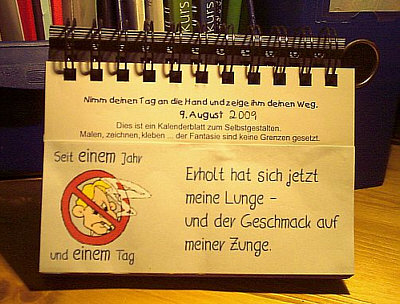 kurs
kurs
Nimm deinen Tag an die Hand und zeige ihm deinen Weg.
9. August 2009
Dies ist ein Kalenderblatt zum Selbstgestalten.
Malen, zeichnen, kleben ... der Fantasie sind keine Grenzen gesetzt.
Seit einem Jahr
und einem Tag
Erholt hat sich jetzt
meine Lunge –
und der Geschmack auf
meiner Zunge.